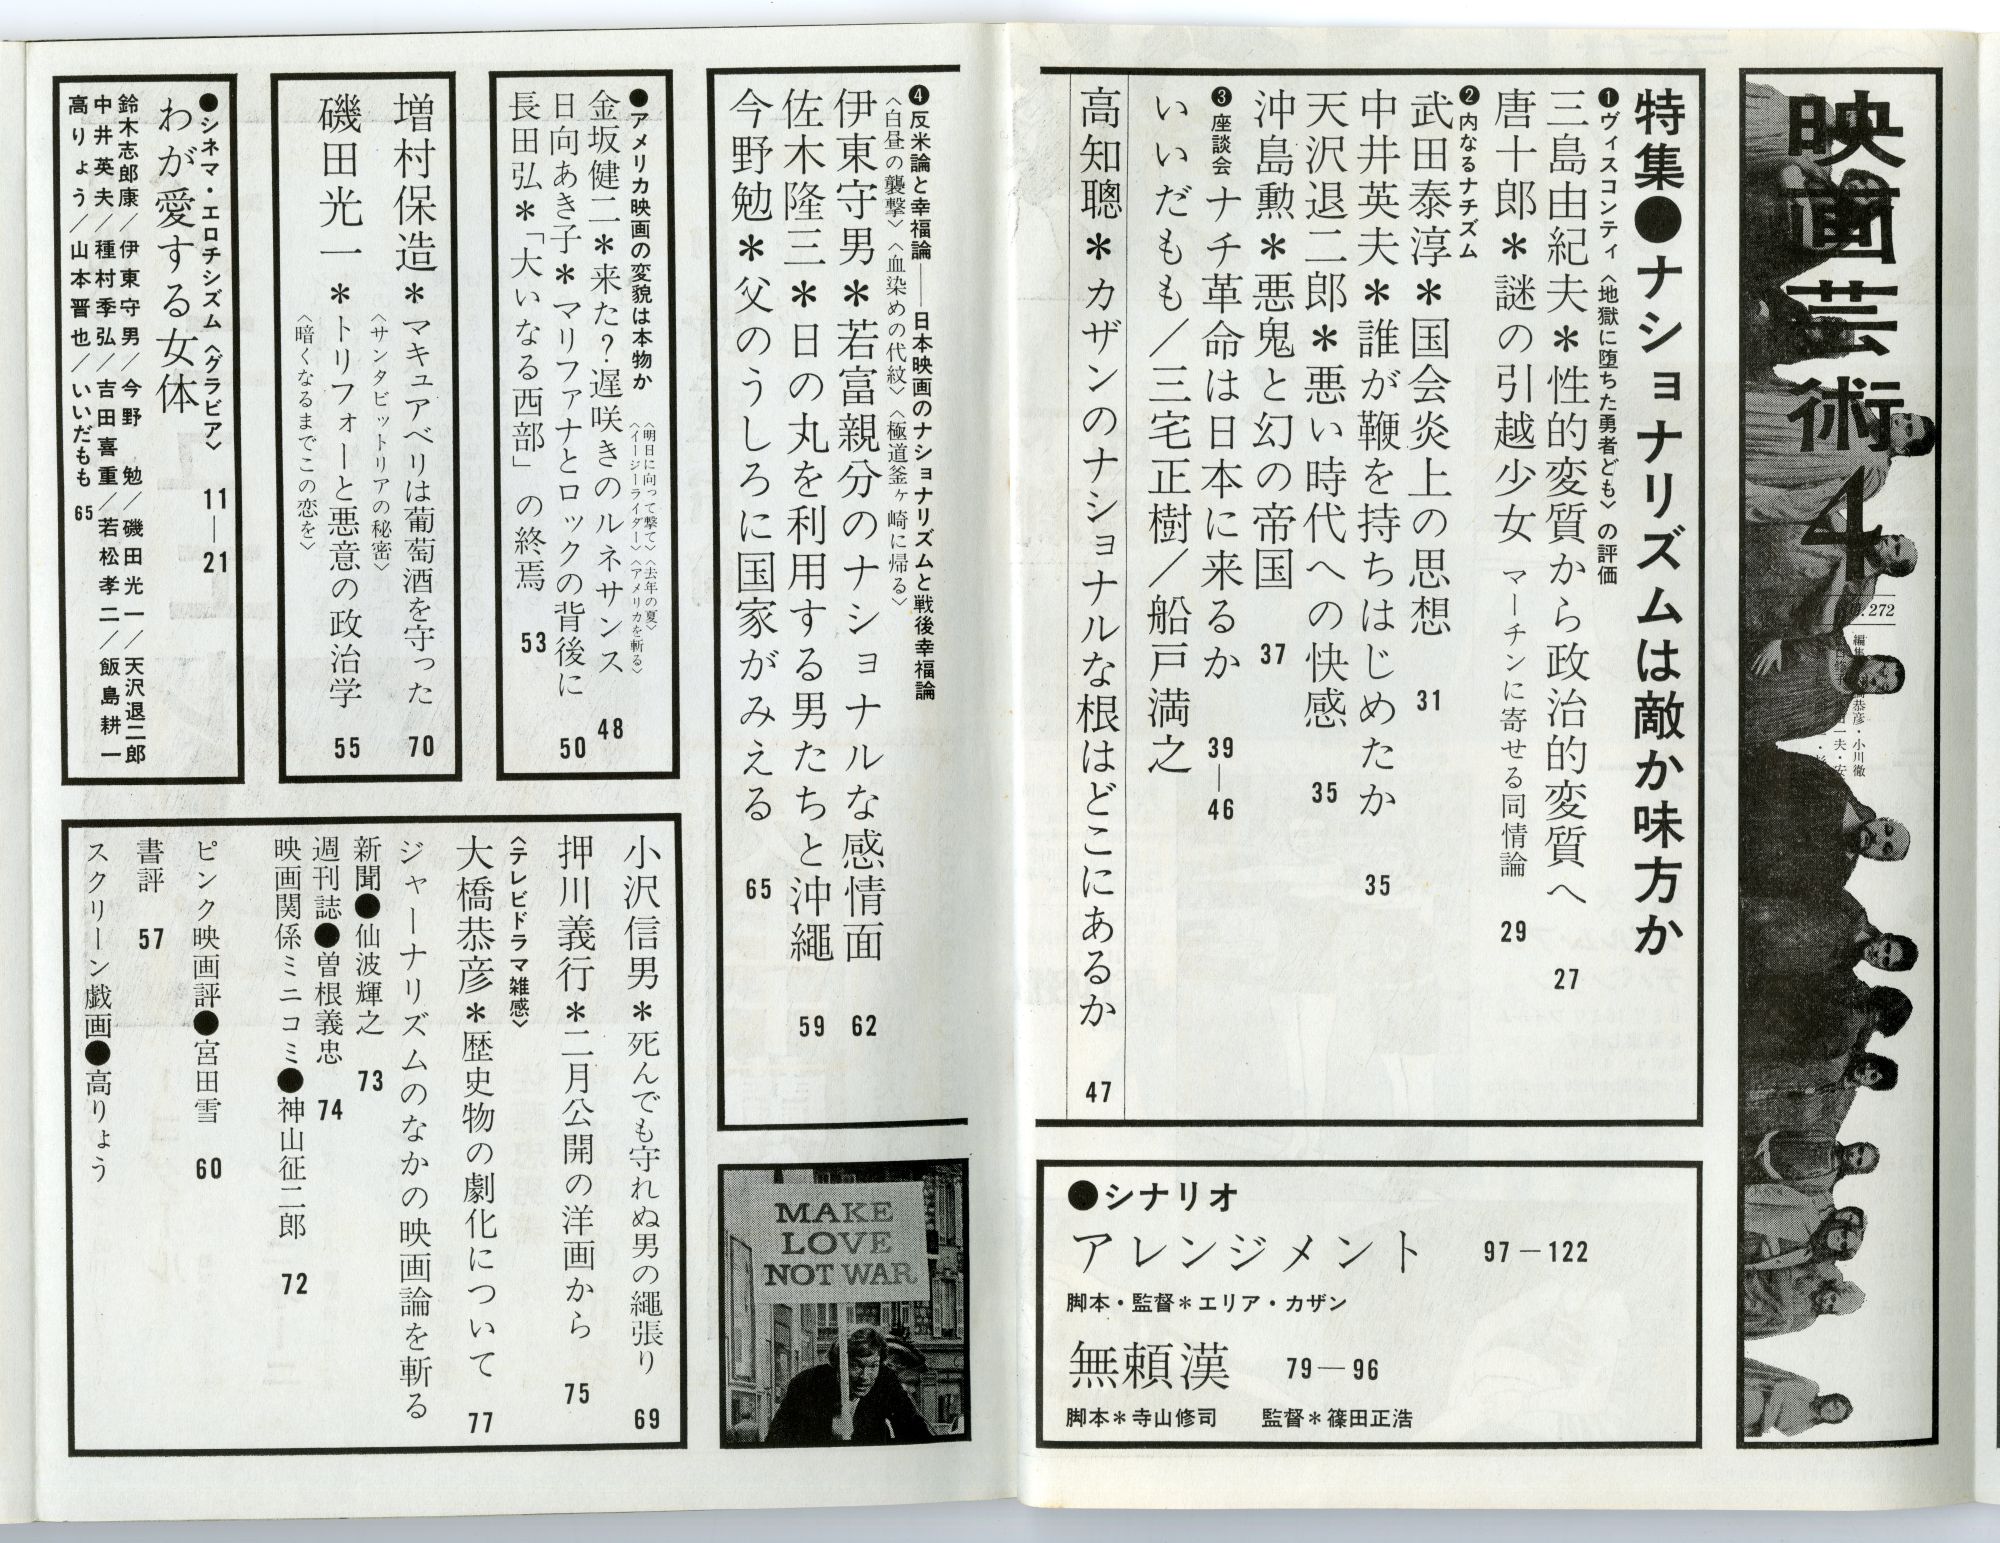 映画芸術4
特集●ナショナリズムは敵か味方か
❶ヴィスコンティ〈地獄に堕ちた勇者ども〉の評価
三島由紀夫＊性的変質から政治的変質へ 27
唐十郎＊謎の引越少女 マーチンに寄せる同情論 29
❷内なるナチズム
武田泰淳＊国会炎上の思想 31
中井英夫＊誰が鞭を持ちはじめたか 35
天沢退二郎＊悪い時代への快感 35
沖島勲＊悪鬼と幻の帝国 37
❸座談会 ナチ革命は日本に来るか 39—46
いいだもも／三宅正樹／船戸満之
高知聰＊カザンのナショナルな根はどこにあるか 47
●シナリオ
アレンジメント 97—122
脚本・監督＊エリア・カザン
無頼漢 79—96
脚本＊寺山修司 監督＊篠田正浩
❹反米論と幸福論——日本映画のナショナリズムと戦後幸福論
〈白昼の襲撃〉〈血染めの代紋〉〈極道釜ヶ崎に帰る〉
伊東守男＊若富親分のナショナルな感情面 62
佐木隆三＊日の丸を利用する男たちと沖縄 59
今野勉＊父のうしろに国家がみえる 65
MAKE
LOVE
NOT WAR
●アメリカ映画の変貌は本物か
〈明日に向って撃て〉〈去年の夏〉
〈イージーライダー〉〈アメリカを斬る〉
金坂健二＊来た？遅咲きのルネサンス 48
日向あき子＊マリファナとロックの背後に 50
長田弘＊「大いなる西部」の終焉 53
増村保造＊マキュアベリは葡萄酒を守った 70
〈サンタビットリアの秘密〉
磯田光一＊トリフォーと悪意の政治学 55
〈暗くなるまでこの恋を〉
●シネマ・エロチシズム〈グラビア〉 11—21
わが愛する女体
鈴木志郎康／伊東守男／今野勉／磯田光一／天沢退二郎
中井英夫／種村季弘／吉田喜重／若松孝二／飯島耕一
高りょう／山本晋也／いいだもも 65
小沢信男＊死んでも守れぬ男の縄張り 69
押川義行＊二月公開の洋画から 75
〈テレビドラマ雑感〉
大橋恭彦＊歴史物の劇化について 77
ジャーナリズムのなかの映画論を斬る
新聞●仙波輝之 73
週刊誌●曽根義忠 74
映画関係ミニコミ●神山征二郎 72
ピンク映画評●宮田雪 60
書評 57
スクリーン戯画●高りょう